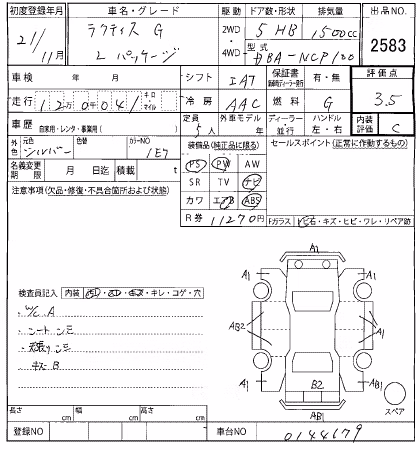 初度登録年月 車名・グレード 駆動 ドア数・形状 排気量 出品NO.
21/11月 ラクティス G 2WD・4WD 5 HB 1500cc 2583
Lパッケージ 型式 DBA-NCP100
車検 年 月 シフト IAT 保証書 有・無 評価点
走行 120,041 キロ マイル 冷房 AAC 燃料 G 3.5
車歴 自家用・レンタ・事業用( ) 定員 5人 外車モデル 年 ディーラー・並行 ハンドル 左・右 内装評価 C
外色 元色 シルバー 色替 カラーNO 1E7 装備品(純正品に限る) セールスポイント(正常に作動するもの)
名義変更期限 月 日迄 積載 t PS PW AW
注意事項(欠品・修復・不具合箇所および状態) SR TV ナビ
カワ エアB ABS
R券 11270円 Fガラス トビ石・キズ・ヒビ・ワレ・リペア跡
A1
A1 A1
検査員記入 内装
キレ・コゲ・穴
AB2 A1
シートシミ
キズB
A1 B2 A1
AB1 スペア
長さ cm 幅 cm 高さ cm
登録NO 車台NO 0144679